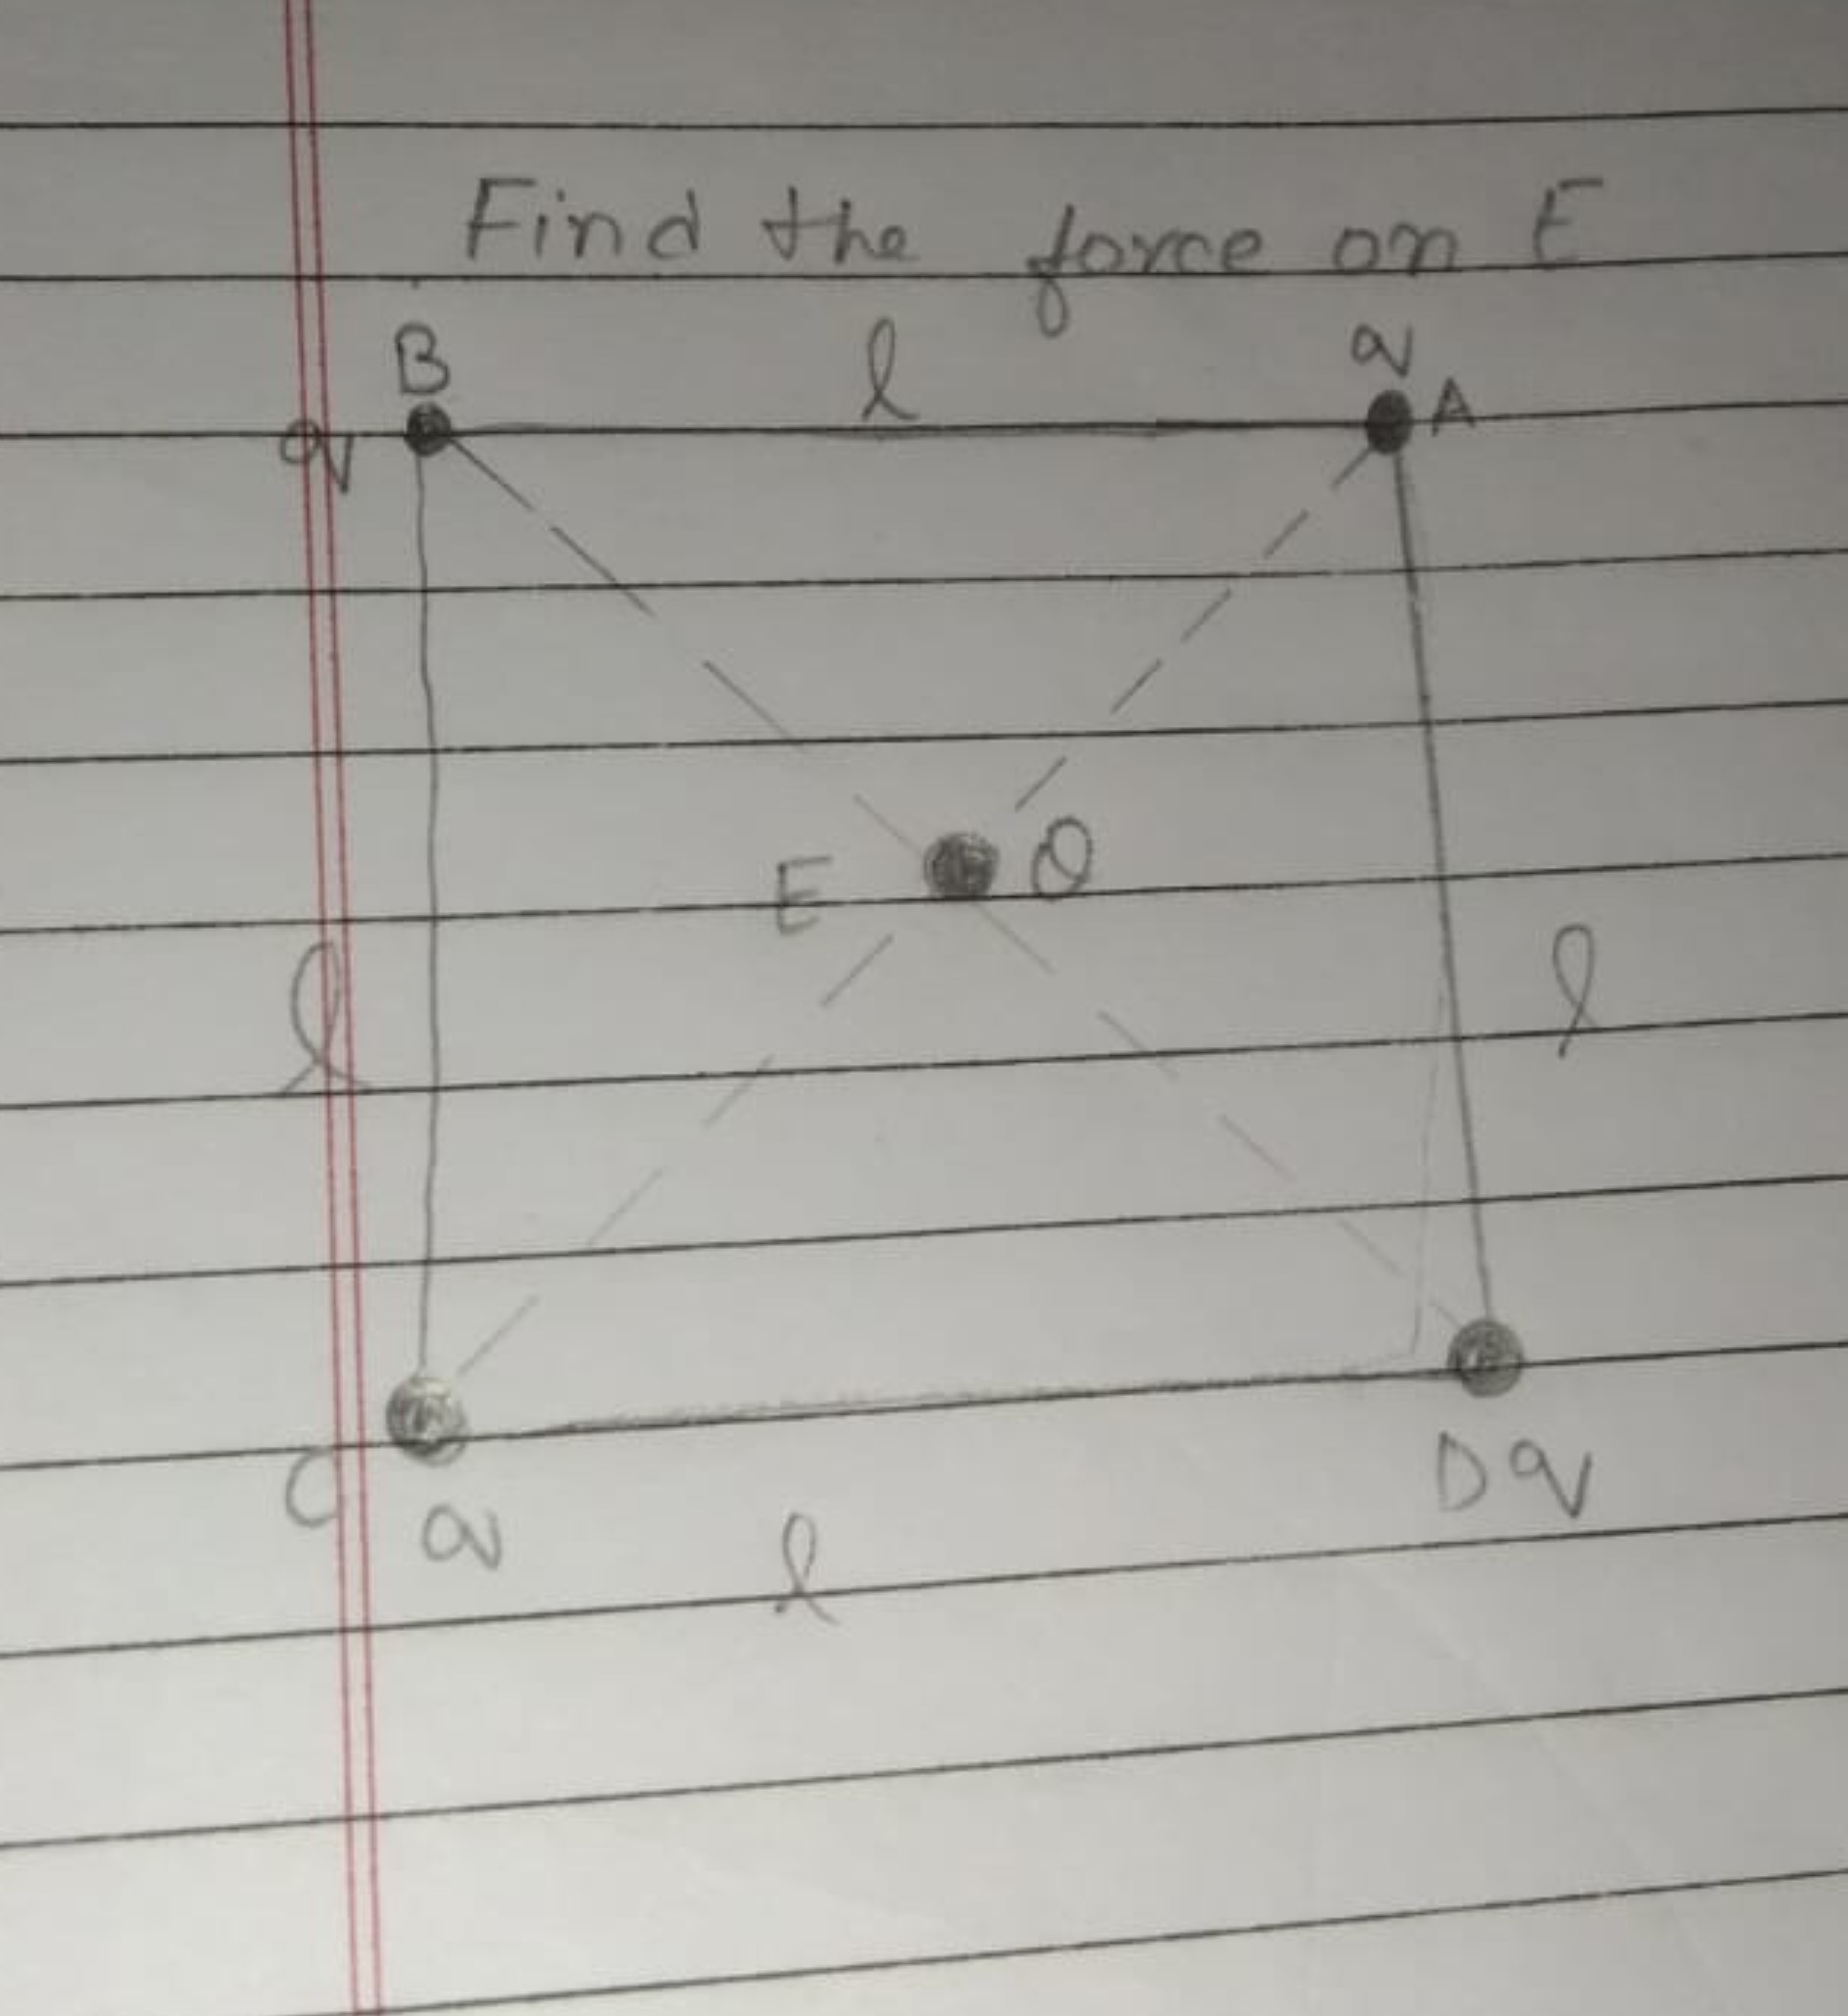 Find the force on E
B
l
q
q
A
E
Q
l
l
C
q
D q
l